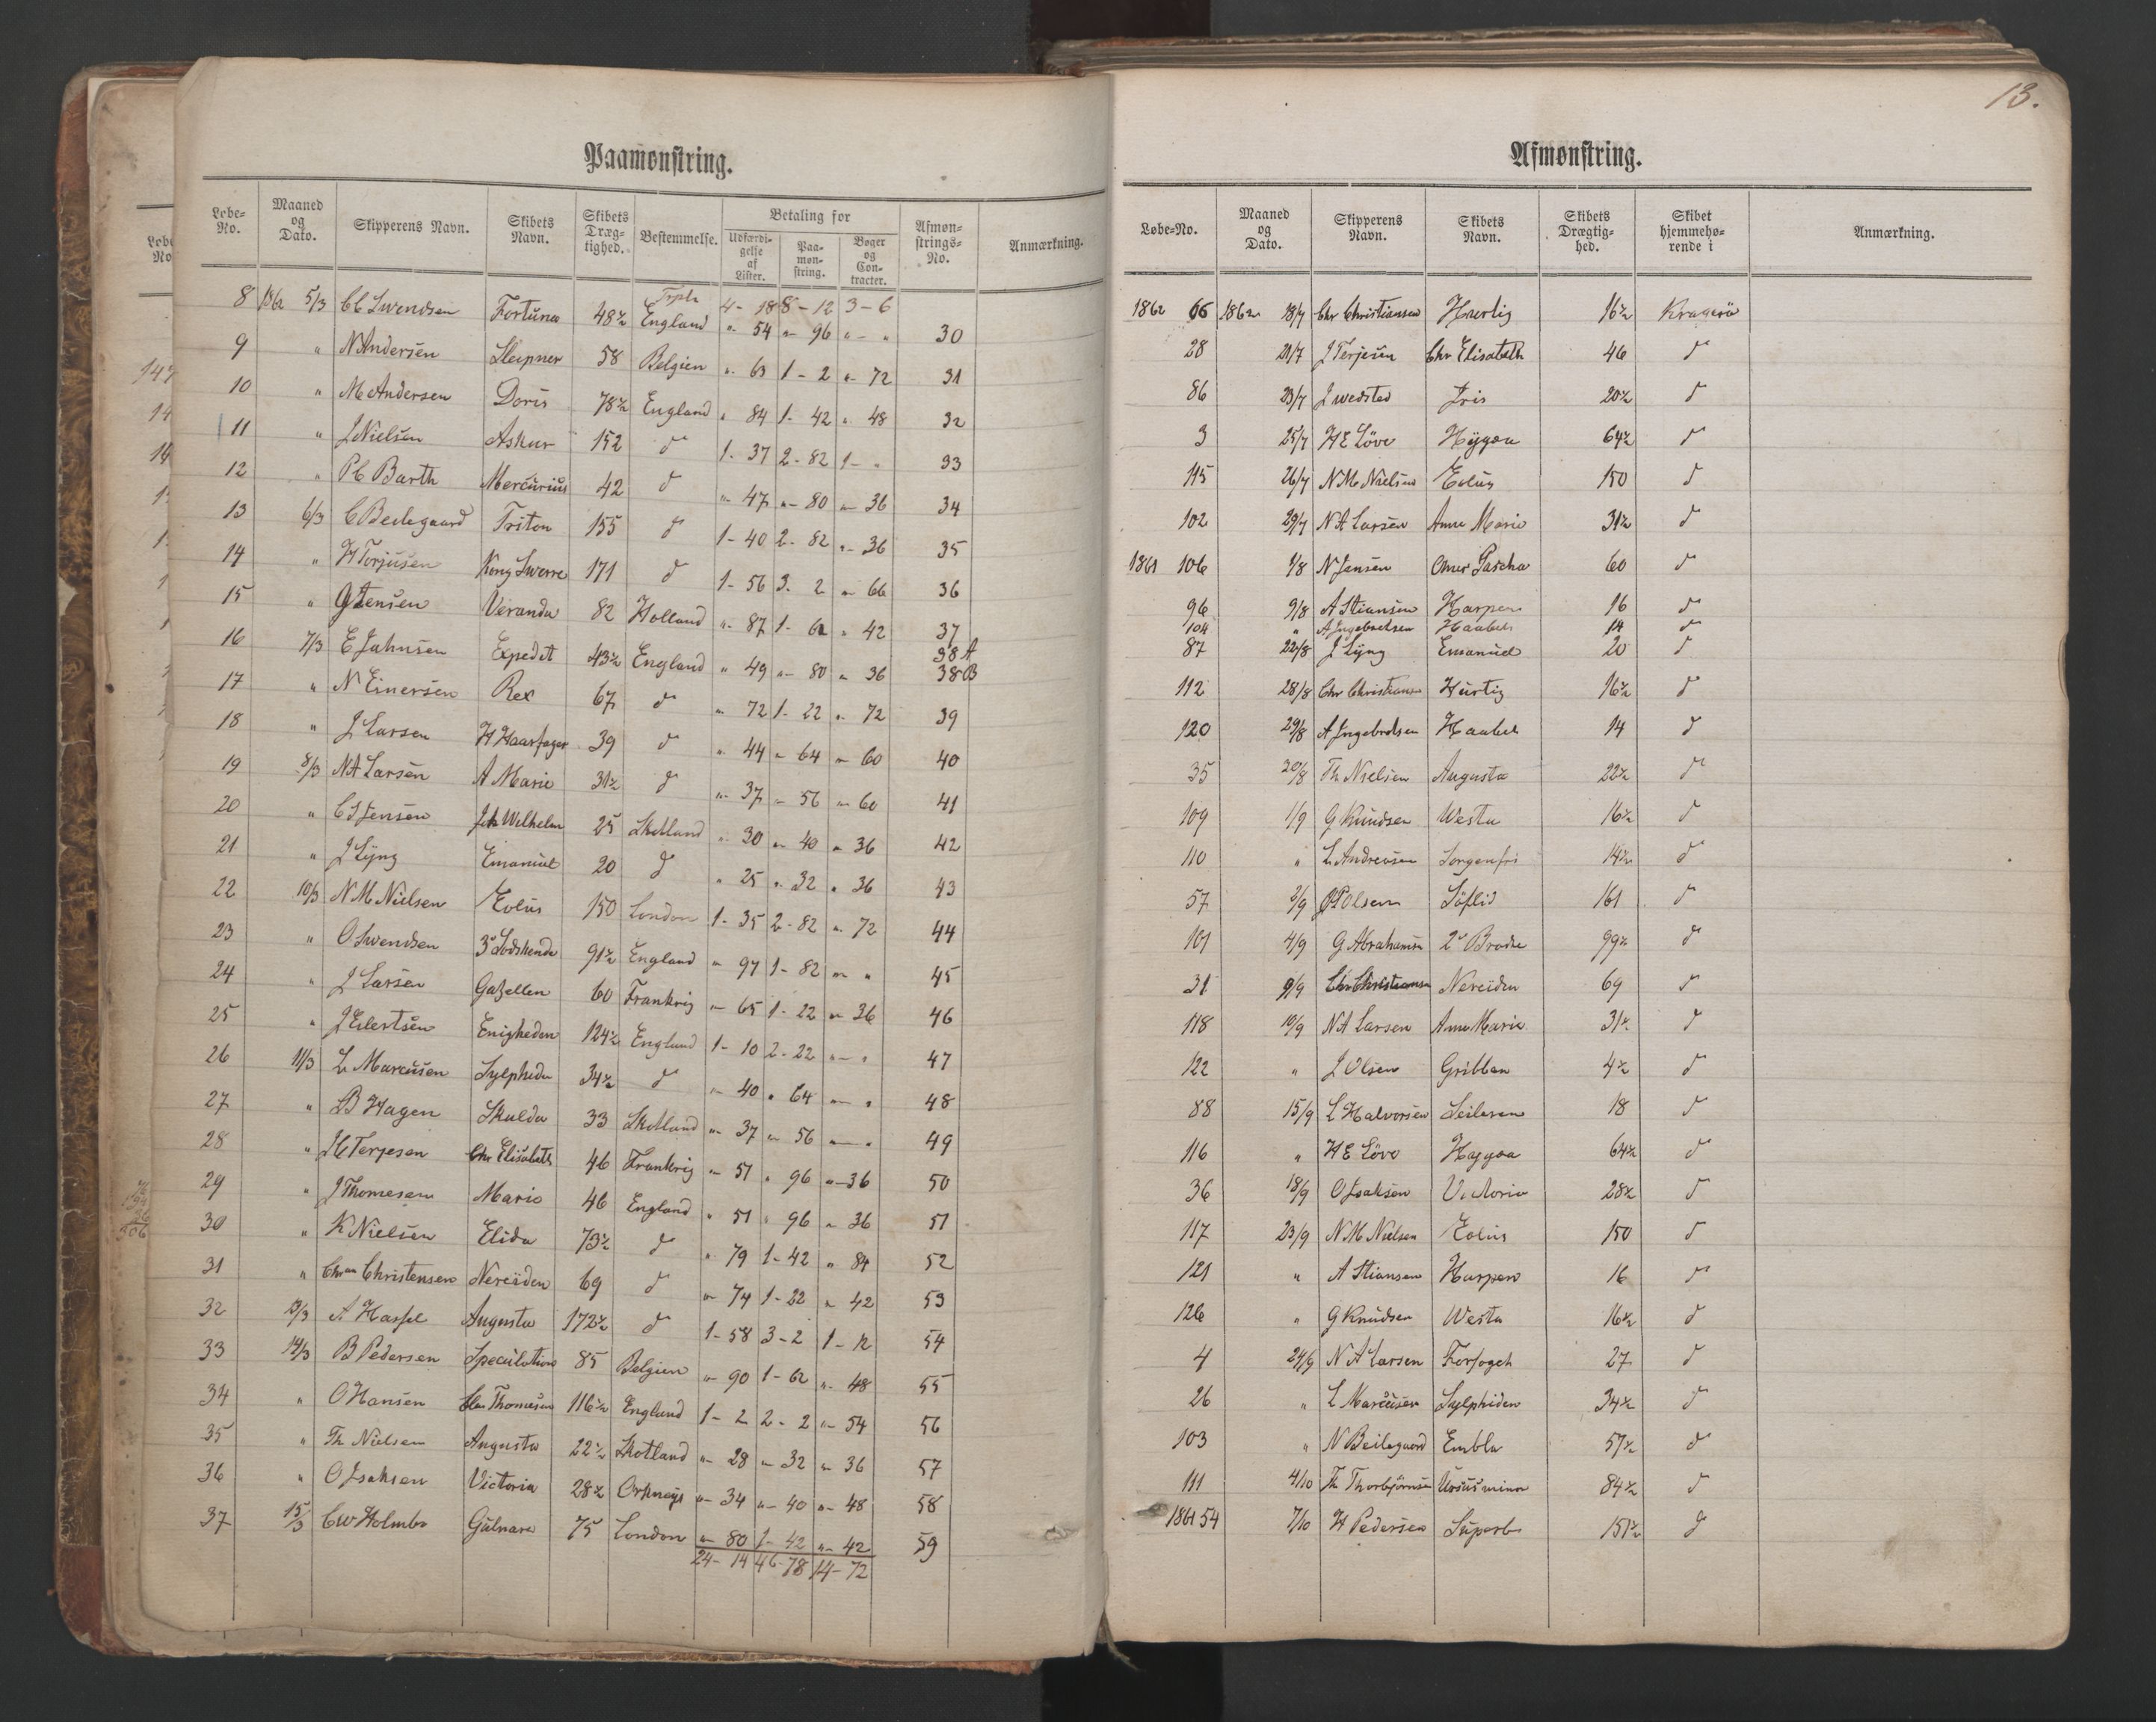 Paamønstring.
Løbe-No. | Maaned og Dato. | Skipperens Navn. | Skibets Navn. | Skibets Dræg-tighed. | Bestemmelse. | Betaling for | Udfærdi-gelse af Lister. | Paa-møn-string. | Bøger og Con-tracter. | Afmøn-strings-No. | Anmærkning.
Trpt 4 - 18 8 - 12 3 - 6
8 1862 5/3 Swendsen Fortuna 48½ England " 54 " 96 " - " 30
9 " N Andersen Sleipner 58 Belgien " 63 1 - 2 " 72 31
10 " M Andersen Doris 78½ England " 84 1 - 42 " 48 32
11 " J Nielsen Askur 152 d 1 - 37 2 - 82 1 - " 33
12 " P C Barth Mercurius 42 d " 47 " 80 " 36 34
13 6/3 C Beilegaard Triton 155 d 1 - 40 2 - 82 " 36 35
14 " H Torjusen Kong Swerre 171 d 1 - 56 3 - 2 " 66 36
15 " G Jensen Veranda 82 Holland " 87 1 - 62 " 42 37
16 7/3 E Jahnsen Expedit 43½ England " 49 " 80 " 36 38 A 38 B
17 " N Einersen Rex 67 d " 72 1 - 22 " 72 39
18 " J Larsen H Haarfager 39 d " 44 " 64 " 60 40
19 8/3 N A Larsen A Marie 31½ d " 37 " 56 " 60 41
20 " C S Jensen Joh Wilhelm 25 Skotland " 30 " 40 " 36 42
21 " J Lyng Emanuel 20 d " 25 " 32 " 36 43
22 10/3 N M Nielsen Eolus 150 London 1 - 35 2 - 82 " 72 44
23 " O Swendsen 3 Sødskende 91½ England " 97 1 - 82 " " 45
24 " J Larsen Gazellen 60 Frankrig " 65 1 - 22 " 36 46
25 " J Eilertsen Enigheden 124½ England 1 - 10 2 - 22 " " 47
26 11/3 L Marcusen Sylphide 34½ d " 40 " 64 " " 48
27 " B Hagen Skulda 33 Skotland " 37 " 56 " " 49
28 " Terjesen Chr Elisabeth 46 Frankrig " 51 " 96 " 36 50
29 " J Thomesen Marie 46 England " 51 " 96 " 36 51
30 " K Nielsen Elida 73½ d " 79 1 - 42 " 84 52
31 " Chr Christensen Nereiden 69 d " 74 1 - 22 " 42 53
32 13/3 A Hassel Augusta 172½ d 1 - 58 3 - 2 1 - 12 54
33 14/3 B Pedersen Speculation 85 Belgien " 90 1 - 62 " 48 55
34 " O Hansen Thomesen 116½ England 1 - 2 2 - 2 " 54 56
35 " Th Nielsen Augusta 22½ Skotland " 28 " 32 " 36 57
36 " O Isaksen Victoria 28½ Orkneys " 34 " 40 " 48 58
37 15/3 C W Holmbo Gulnare 75 London " 80 1 - 42 " 42 59
24 - 14 46 - 78 14 - 72
13.
Afmønstring.
Løbe-No. | Maaned og Dato. | Skipperens Navn. | Skibets Navn. | Skibets Drægtig-hed. | Skibet hjemmehø-rende i | Anmærkning.
1862 66 1862 18/7 Chr Christiansen Hurtig 16½ Kragerö
28 21/7 J Terjesen Chr Elisabeth 46 d
86 23/7 J Wedsted Iris 20½ d
3 25/7 H E Löve Hygæa 64½ d
115 26/7 N M Nielsen Eolus 150 d
102 29/7 N A Larsen Anne Marie 31½ d
1861 106 1/8 N Jensen Omer Pascha 60 d
96 9/8 A Stiansen Harpen 16 d
104 " A Ingebretsen Haabet 14 d
87 22/8 J Lyng Emanuel 20 d
112 28/8 Chr Christiansen Hurtig 16½ d
120 29/8 A Ingebretsen Haabet 14 d
35 30/8 Th Nielsen Augusta 22½ d
109 1/9 G Knudsen Westa 16½ d
110 " L Andreasen Sorgenfri 14½ d
57 2/9 Olsen Söflid 161 d
101 4/9 G Abrahamsen 2 Brødre 99½ d
31 9/9 Chr Christiansen Nereiden 69 d
118 10/9 N A Larsen Anne Marie 31½ d
122 " J Olsen Gribben 4½ d
88 15/9 L Halvorsen Seileren 18 d
116 " H E Löve Hygæa 64½ d
36 18/9 O Isaksen Victoria 28½ d
117 23/9 N M Nielsen Eolus 150 d
121 " A Stiansen Harpen 16 d
126 " G Knudsen Westa 16½ d
4 24/9 N A Larsen Forsøget 27 d
26 " L Marcusen Sylphiden 34½ d
103 " N Beilegaard Embla 57½ d
111 4/10 Th Thorbjörnsen Ursus minor 84½ d
1861 54 7/10 H Pedersen Superb 151½ d